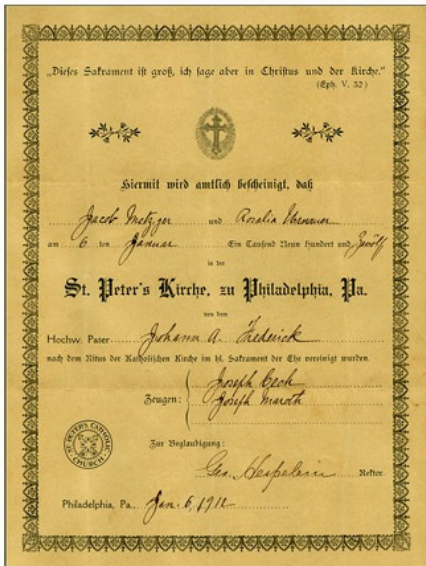 „Dieses Sakrament ist groß, ich sage aber in Christus und der Kirche.“
(Eph. V. 32)
Hiermit wird amtlich bescheinigt, daß
Jacob Metzger und Rosalia
am 6 ten Januar Ein Tausend Neun Hundert und Zwölf
in der
St. Peter's Kirche, zu Philadelphia, Pa.
von dem
Hochw. Pater Johann A. Frederick
nach dem Ritus der Katholischen Kirche im hl. Sakrament der Ehe vereinigt wurden.
Joseph Cech
Zeugen: Joseph Maroth
ST. PETER'S CATHOLIC CHURCH
Zur Beglaubigung:
Geo. Hespelein Rektor.
Philadelphia, Pa., Jan. 6, 1912